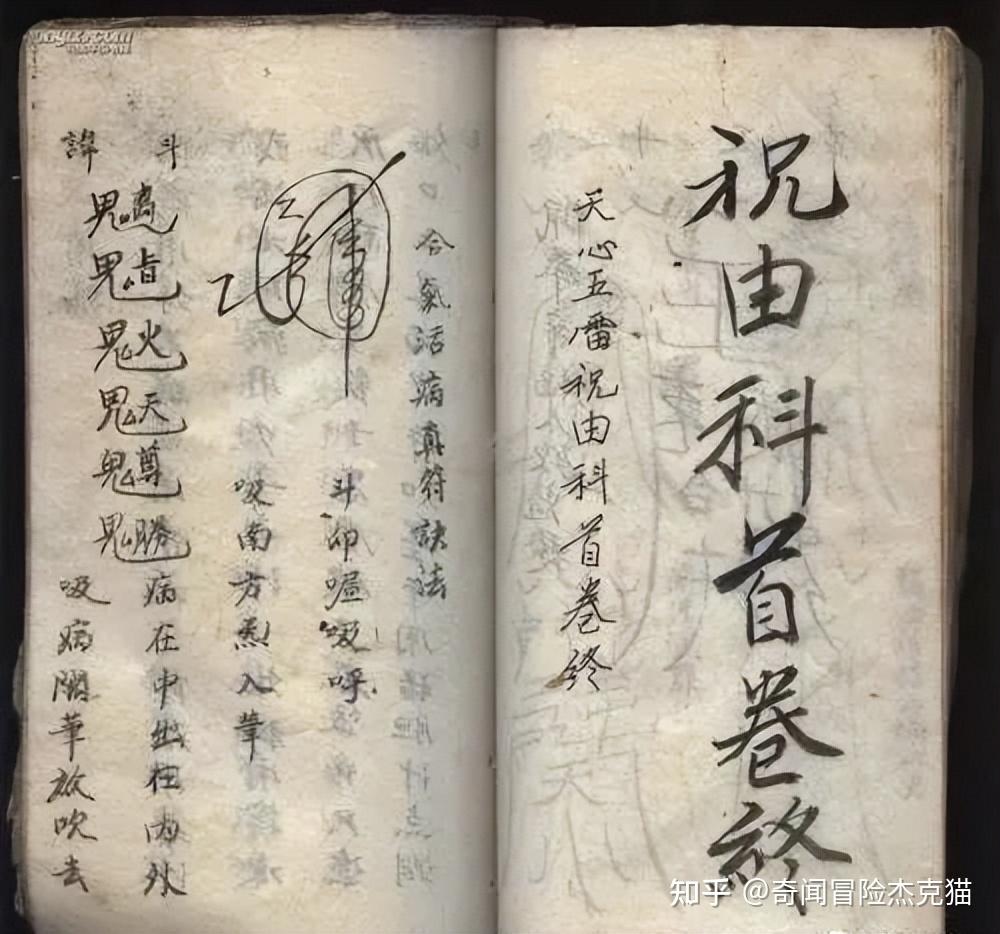 祝由科首卷終
天心五雷祝由科首卷終
合氣活病真符訣法
斗即嗢吸呼
吸南方炁入筆
斗
病在中出在内外
諱
吸病關筆放吹去
知乎 @奇闻冒险杰克猫